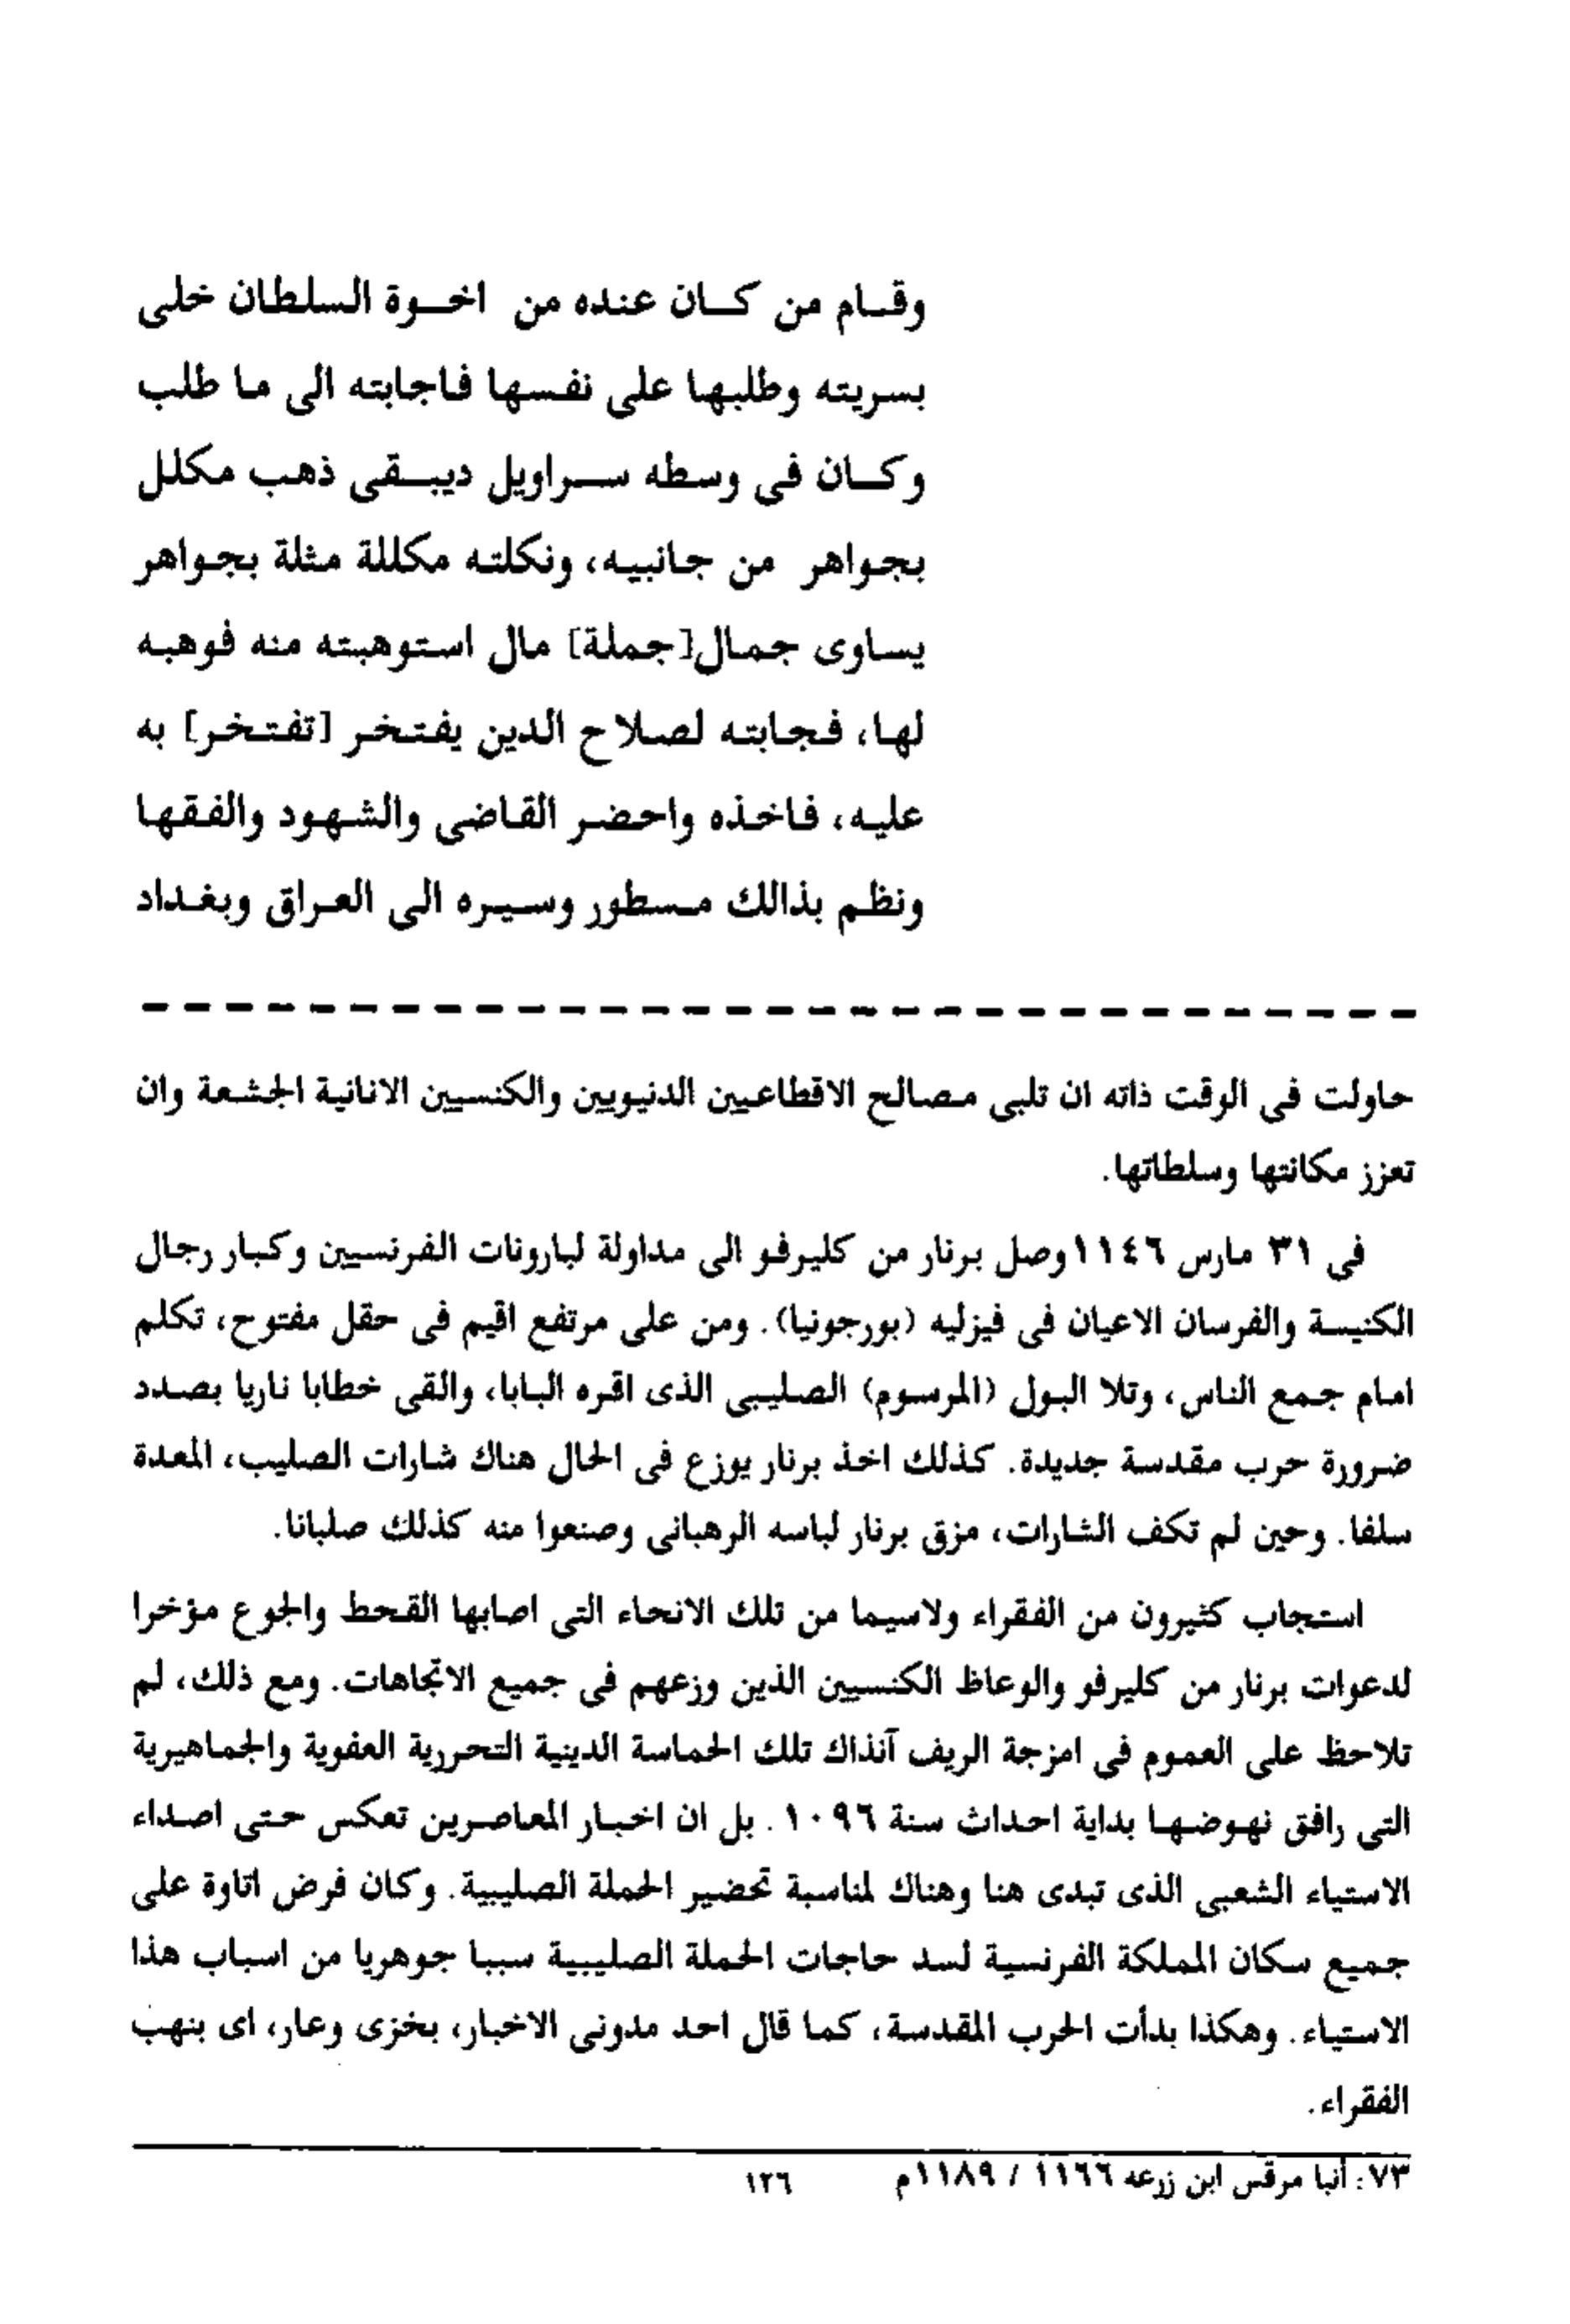 وقام من كان عنده من اخوة السلطان خلى
بسريته وطلبها على نفسها فاجابته الى ما طلب
وكان فى وسطه سراويل ديبقى ذهب مكلل
بجواهر من جانبيه، ونكلته مكللة مثلة بجواهر
يساوى جمال[جملة] مال استوهبته منه فوهبه
لها، فجابته لصلاح الدين يفتخر [تفتخر] به
عليه، فاخذه واحضر القاضى والشهود والفقها
ونظم بذالك مسطور وسيره الى العراق وبغداد
حاولت فى الوقت ذاته ان تلبى مصالح الاقطاعيين الدنيويين والكنسيين الانانية الجشعة وان
تعزز مكانتها وسلطاتها.
فى ٣١ مارس ١١٤٦وصل برنار من كليرفو الى مداولة لبارونات الفرنسيين وكبار رجال
الكنيسة والفرسان الاعيان فى فيزليه (بورجونيا). ومن على مرتفع اقيم فى حقل مفتوح، تكلم
امام جمع الناس، وتلا البول (المرسوم) الصليبى الذى اقره البابا، والقى خطابا ناريا بصدد
ضرورة حرب مقدسة جديدة. كذلك اخذ برنار يوزع فى الحال هناك شارات الصليب، المعدة
سلفا. وحين لم تكف الشارات، مزق برنار لباسه الرهبانى وصنعوا منه كذلك صلبانا.
استجاب كثيرون من الفقراء ولاسيما من تلك الانحاء التى اصابها القحط والجوع مؤخرا
لدعوات برنار من كليرفو والوعاظ الكنسيين الذين وزعهم فى جميع الاتجاهات. ومع ذلك، لم
تلاحظ على العموم فى امزجة الريف آنذاك تلك الحماسة الدينية التحررية العفوية والجماهيرية
التى رافق نهوضها بداية احداث سنة ١٠٩٦. بل ان اخبار المعاصرين تعكس حتى اصداء
الاستياء الشعبى الذى تبدى هنا وهناك لمناسبة تحضير الحملة الصليبية. وكان فرض اتاوة على
جميع سكان المملكة الفرنسية لسد حاجات الحملة الصليبية سببا جوهريا من اسباب هذا
الاستياء. وهكذا بدأت الحرب المقدسة، كما قال احد مدونى الاخبار، بخزى وعار، اى بنهب
الفقراء.
٧٣: أنبا مرقس ابن زرعه ١١٦٦ / ١١٨٩م ١٢٦